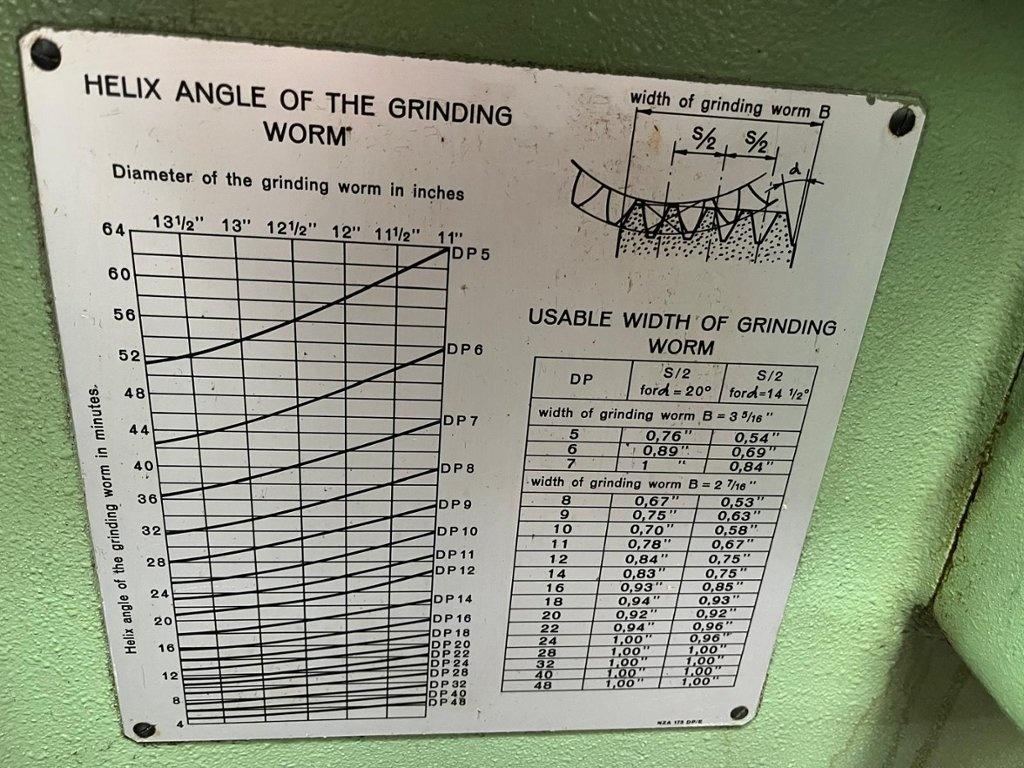 HELIX ANGLE OF THE GRINDING
WORM
Diameter of the grinding worm in inches
13 1/2" 13" 12 1/2" 12" 11 1/2" 11"
Helix angle of the grinding worm in minutes.
64
60
56
52
48
44
40
36
32
28
24
20
16
12
8
4
DP 5
DP 6
DP 7
DP 8
DP 9
DP 10
DP 11
DP 12
DP 14
DP 16
DP 18
DP 20
DP 22
DP 24
DP 28
DP 32
DP 40
DP 48
width of grinding worm B
S/2 S/2
α
USABLE WIDTH OF GRINDING
WORM
DP S/2 for α = 20° S/2 for α = 14 1/2°
width of grinding worm B = 3 5/16"
5 0,76" 0,54"
6 0,89" 0,69"
7 1 " 0,84"
width of grinding worm B = 2 7/16"
8 0,67" 0,53"
9 0,75" 0,63"
10 0,70" 0,58"
11 0,78" 0,67"
12 0,84" 0,75"
14 0,83" 0,75"
16 0,93" 0,85"
18 0,94" 0,93"
20 0,92" 0,92"
22 0,94" 0,96"
24 1,00" 0,96"
28 1,00" 1,00"
32 1,00" 1,00"
40 1,00" 1,00"
48 1,00" 1,00"
NZA 175 DP/E